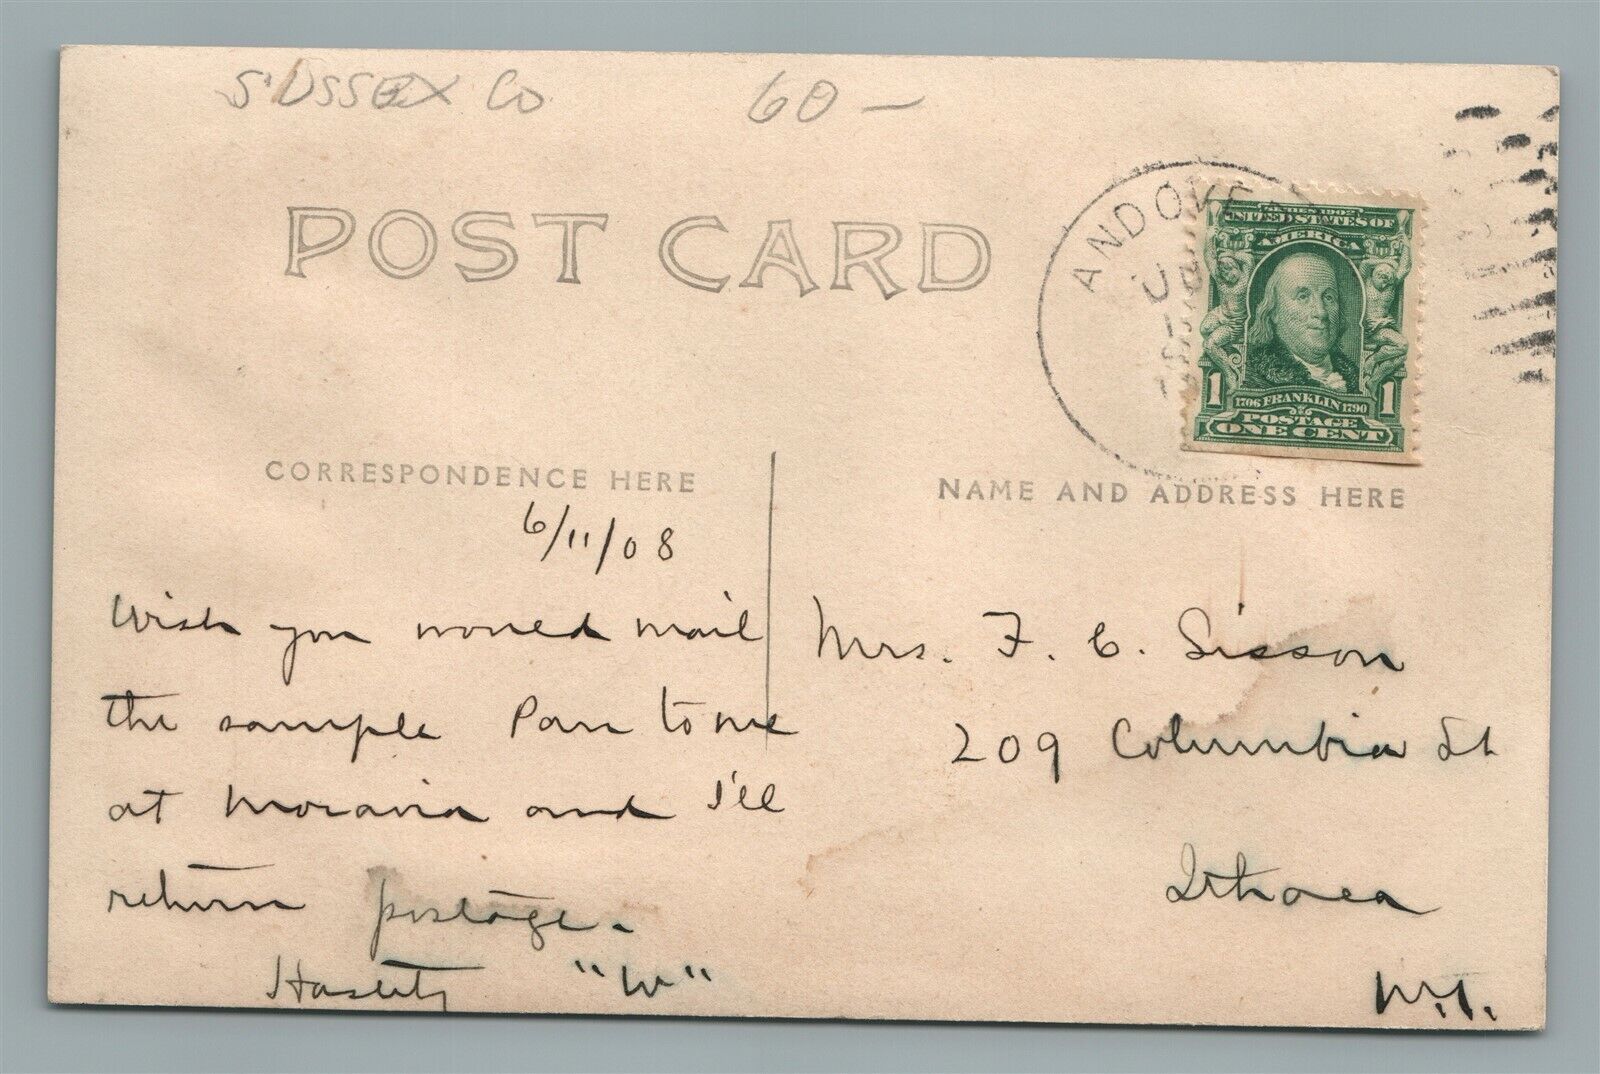 SUSSEX Co 60 —
POST CARD
ANDOVE
SERIES 1902
UNITED STATES OF
AMERICA
1 1
1706 FRANKLIN 1790
POSTAGE
ONE CENT
CORRESPONDENCE HERE
6/11/08
Wish you would mail
the sample Pan to me
at Moravia and I'll
return postage.
Hastily "W"
NAME AND ADDRESS HERE
Mrs. F. C. Sisson
209 Columbia St
Ithaca
N.Y.